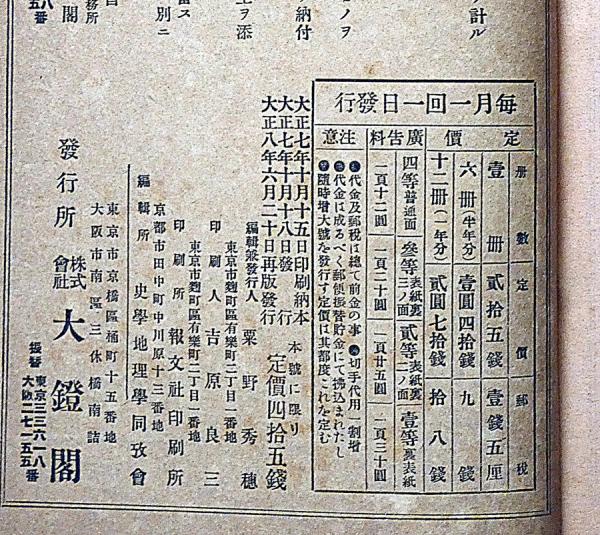 ノ計ル
ノヲ
ノ納付
ヲ添
別ニ
毎月一回一日發行
定價
廣告料
注意
册數 定價 郵税
壹册 貳拾五錢 壹錢五厘
六册(半年分) 壹圓四拾錢 九錢
十二册(一年分) 貳圓七拾錢 拾八錢
四等普通面 一頁十二圓
叁等表紙裏三ノ面 一頁二十圓
貳等表紙裏二ノ面 一頁廿五圓
壹等裏表紙 一頁三十圓
代金及郵税は總て前金の事 切手代用一割増
代金は成るべく郵便振替貯金にて拂込まれたし
隨時増大號を發行す定價は其都度これを定む
本號に限り 定價四拾五錢
大正七年十月十五日印刷納本
大正七年十月十八日發行
大正八年六月二十日再版發行
編輯兼發行人 粟野秀穗
東京市麴町區有樂町二丁目一番地
印刷人 吉原良三
東京市麴町區有樂町二丁目一番地
印刷所 報文社印刷所
京都市田中町中川原十三番地
編輯所 史學地理學同攷會
東京市京橋區桶町十五番地
大阪市南區三休橋南詰
發行所 株式會社 大鐙閣
振替 東京三三六一八番
大阪二七一五五番